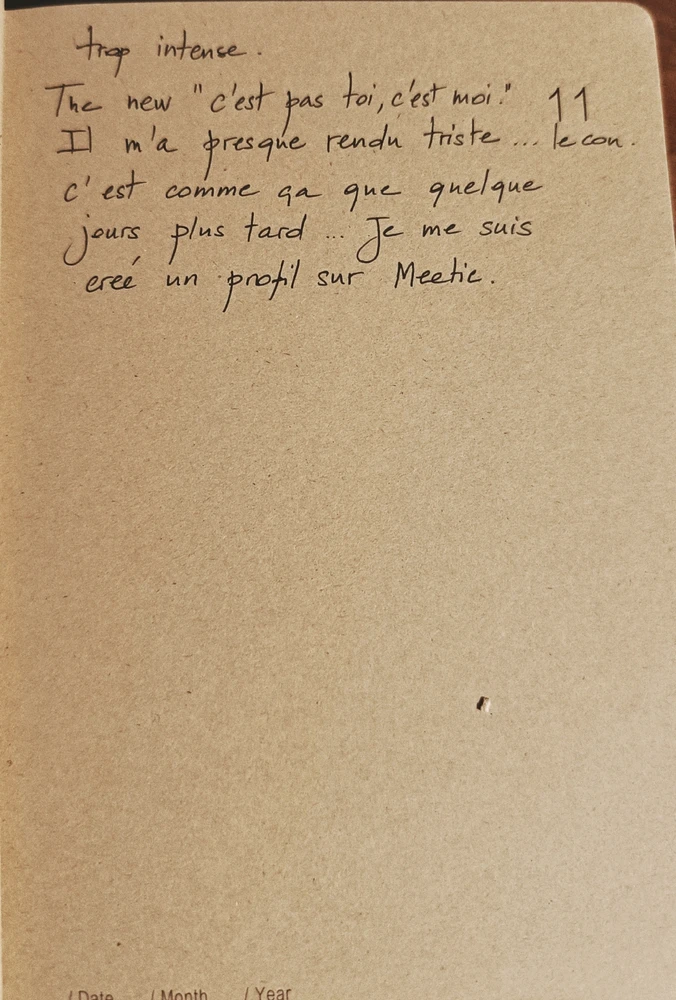 trop intense.
The new "c'est pas toi, c'est moi." 11
Il m'a presque rendu triste... le con.
c'est comme ça que quelque
jours plus tard... Je me suis
creé un profil sur Meetic.
/ Date / Month / Year